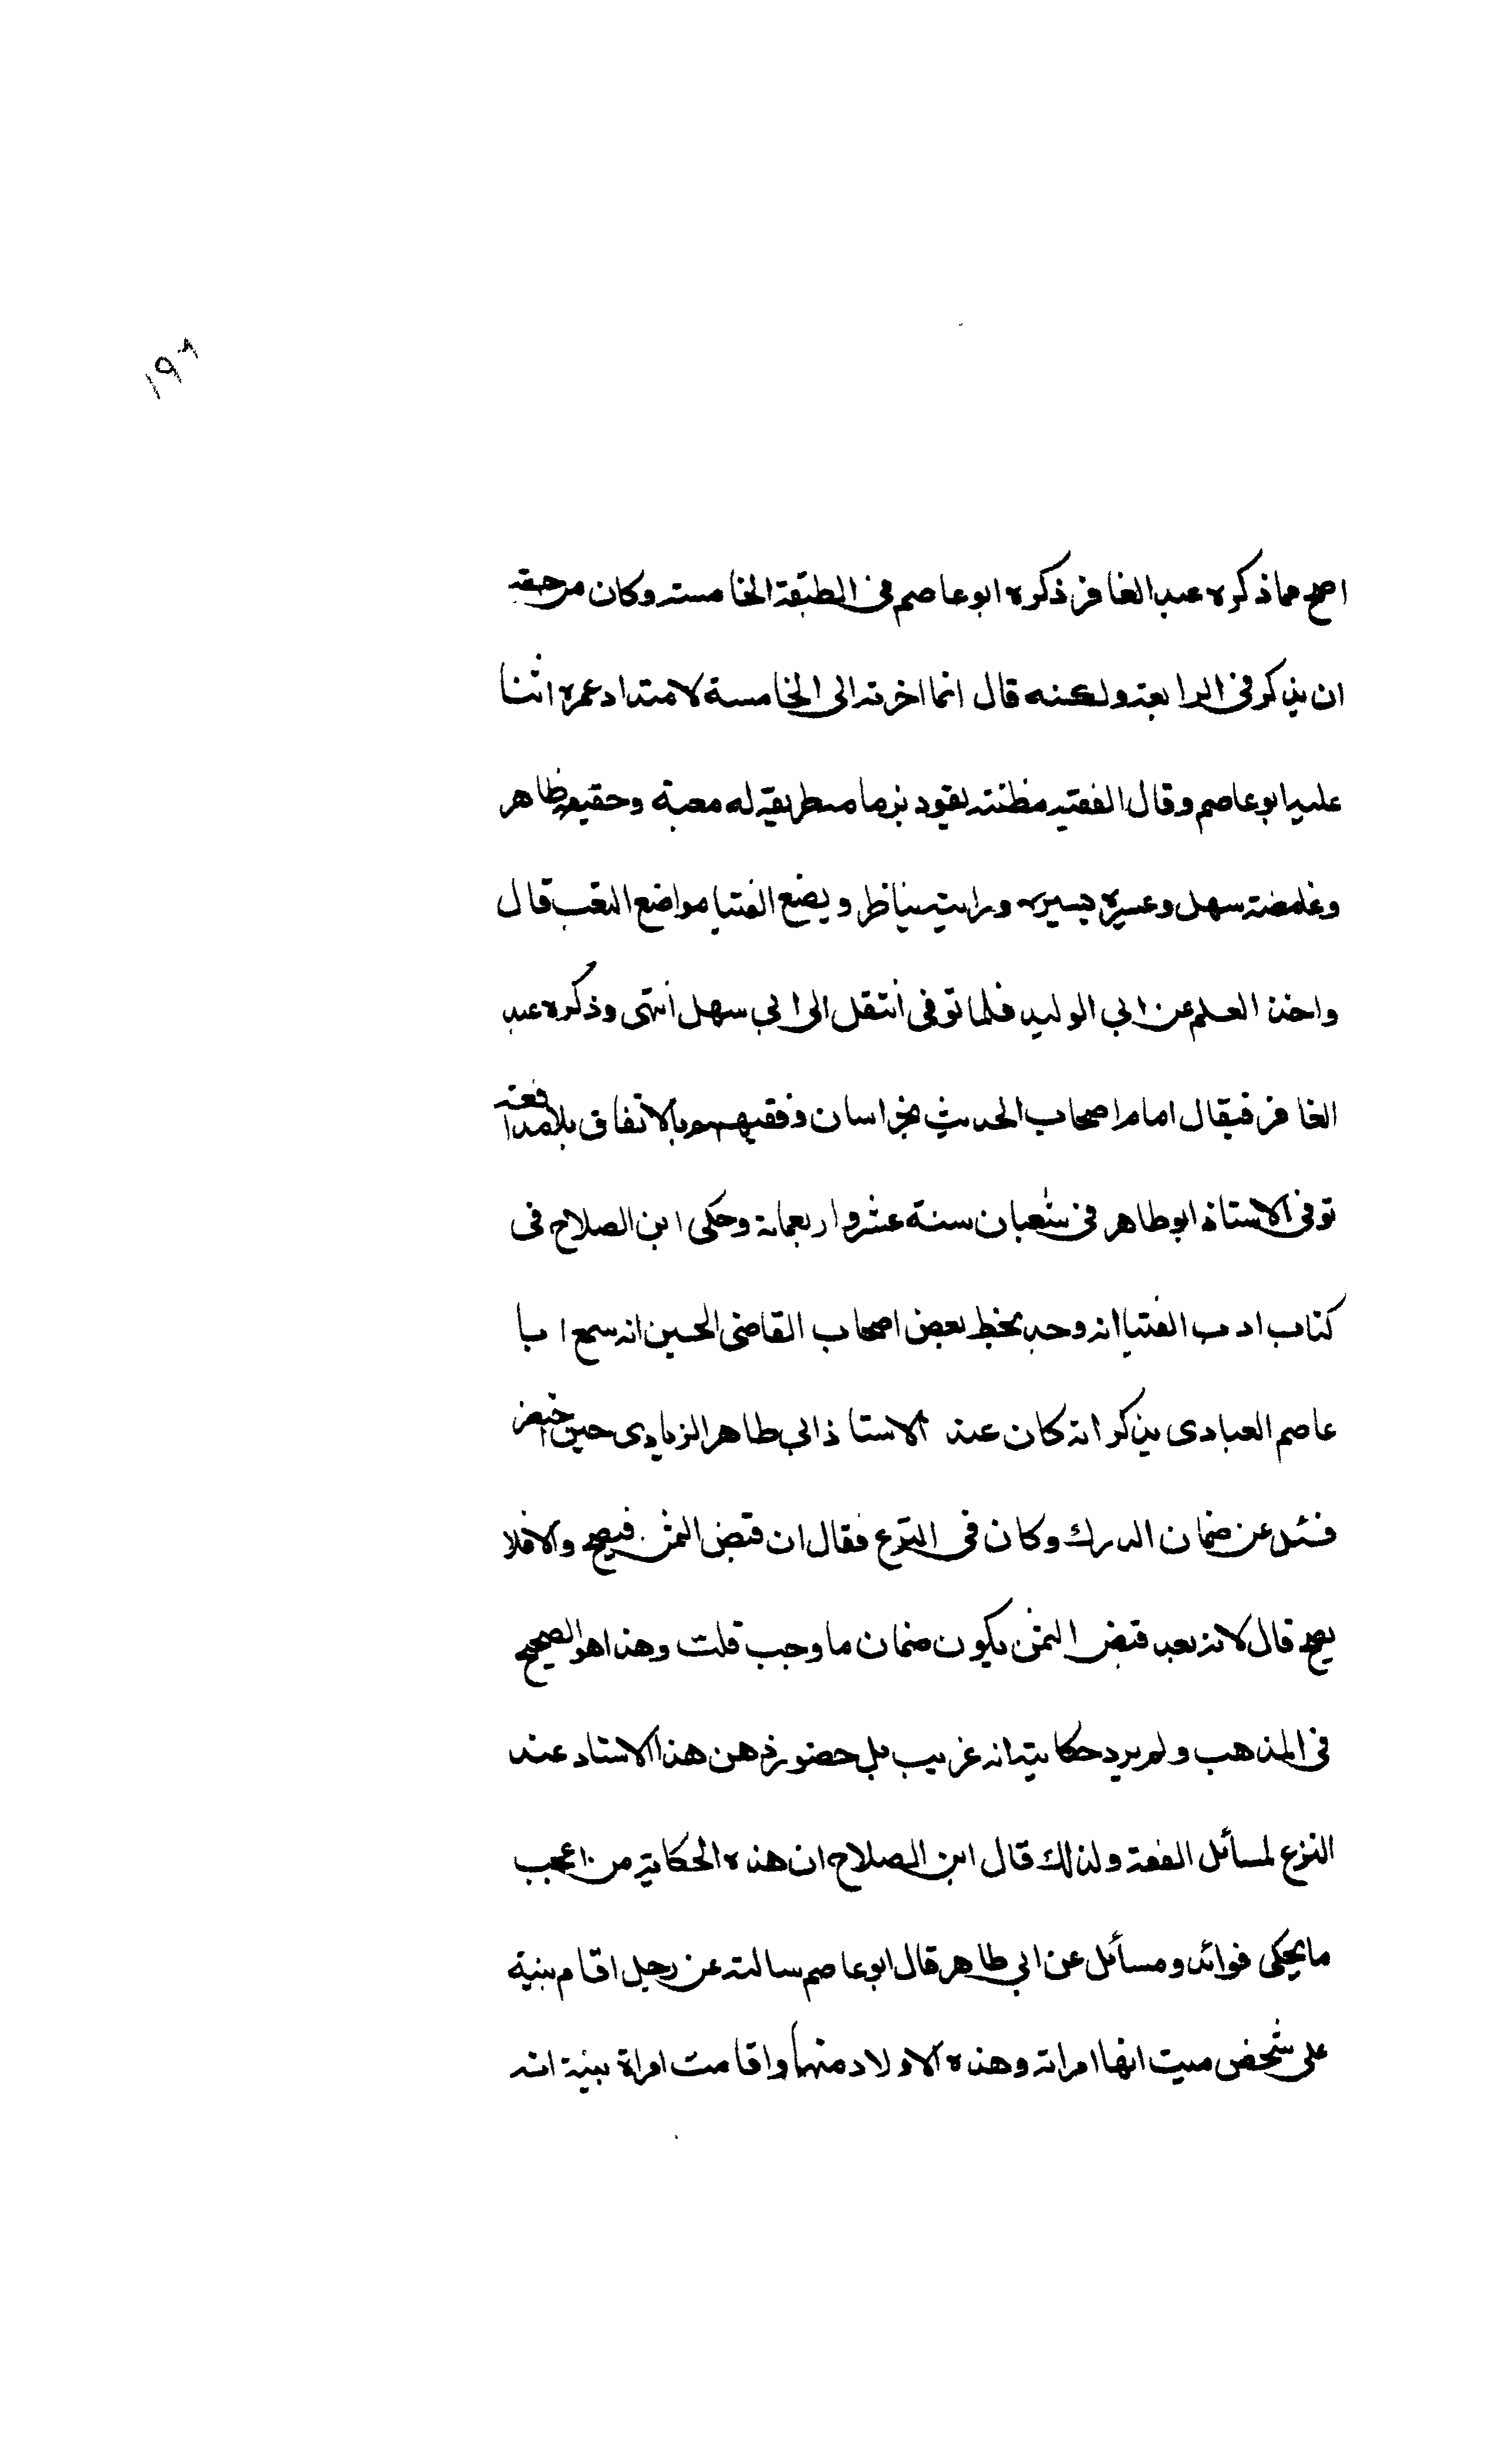 ١٩٨
اصح مما ذكره عبد الغافر ذكره ابو عاصم فى الطبقة الخامسة وكان من حقه
ان يذكر فى الرابعة ولكنه قال انما اخرته الى الخامسة لامتداد عمره اثنا
عليه ابو عاصم وقال الفقيه مظنته يقود بزمامه طريقه له معبة وحقيقه ظاهر
وغامضه سهل وعسيره يسير ورايته يناظر ويضع الفتيا مواضع النقب قال
واخذ العلم عن ابى الوليد فلما توفى انتقل الى ابى سهل انتهى وذكره عبد
الغافر فقال امام اصحاب الحديث بخراسان وفقيههم بالاتفاق بلا مدافعة
توفى الاستاذ ابو طاهر فى شعبان سنة عشر واربعمائة وحكى ابن الصلاح فى
كتاب ادب الفتيا انه وجد بخط بعض اصحاب القاضى الحسين انه سمع ابا
عاصم العبادى يذكر انه كان عند الاستاذ ابى طاهر الزيادى حين احتضر
فسئل عن ضمان الدرك وكان فى النزع فقال ان قبض الثمن فيصح والا فلا
يصح قال لانه بعد قبض الثمن يكون ضمان ما وجب قلت وهذا هو الصحيح
فى المذهب ولم يرد حكايته انه غريب بل حضور ذهن هذا الاستاد عند
النزع لمسائل الفقه ولذلك قال ابن الصلاح ان هذه الحكاية من اعجب
ما يحكى فوائد ومسائل عن ابى طاهر قال ابو عاصم سالته عن رجل اقام بينة
على شخص ميت انها امراته وهذه الاولاد منها واقامت امراة بينة انه